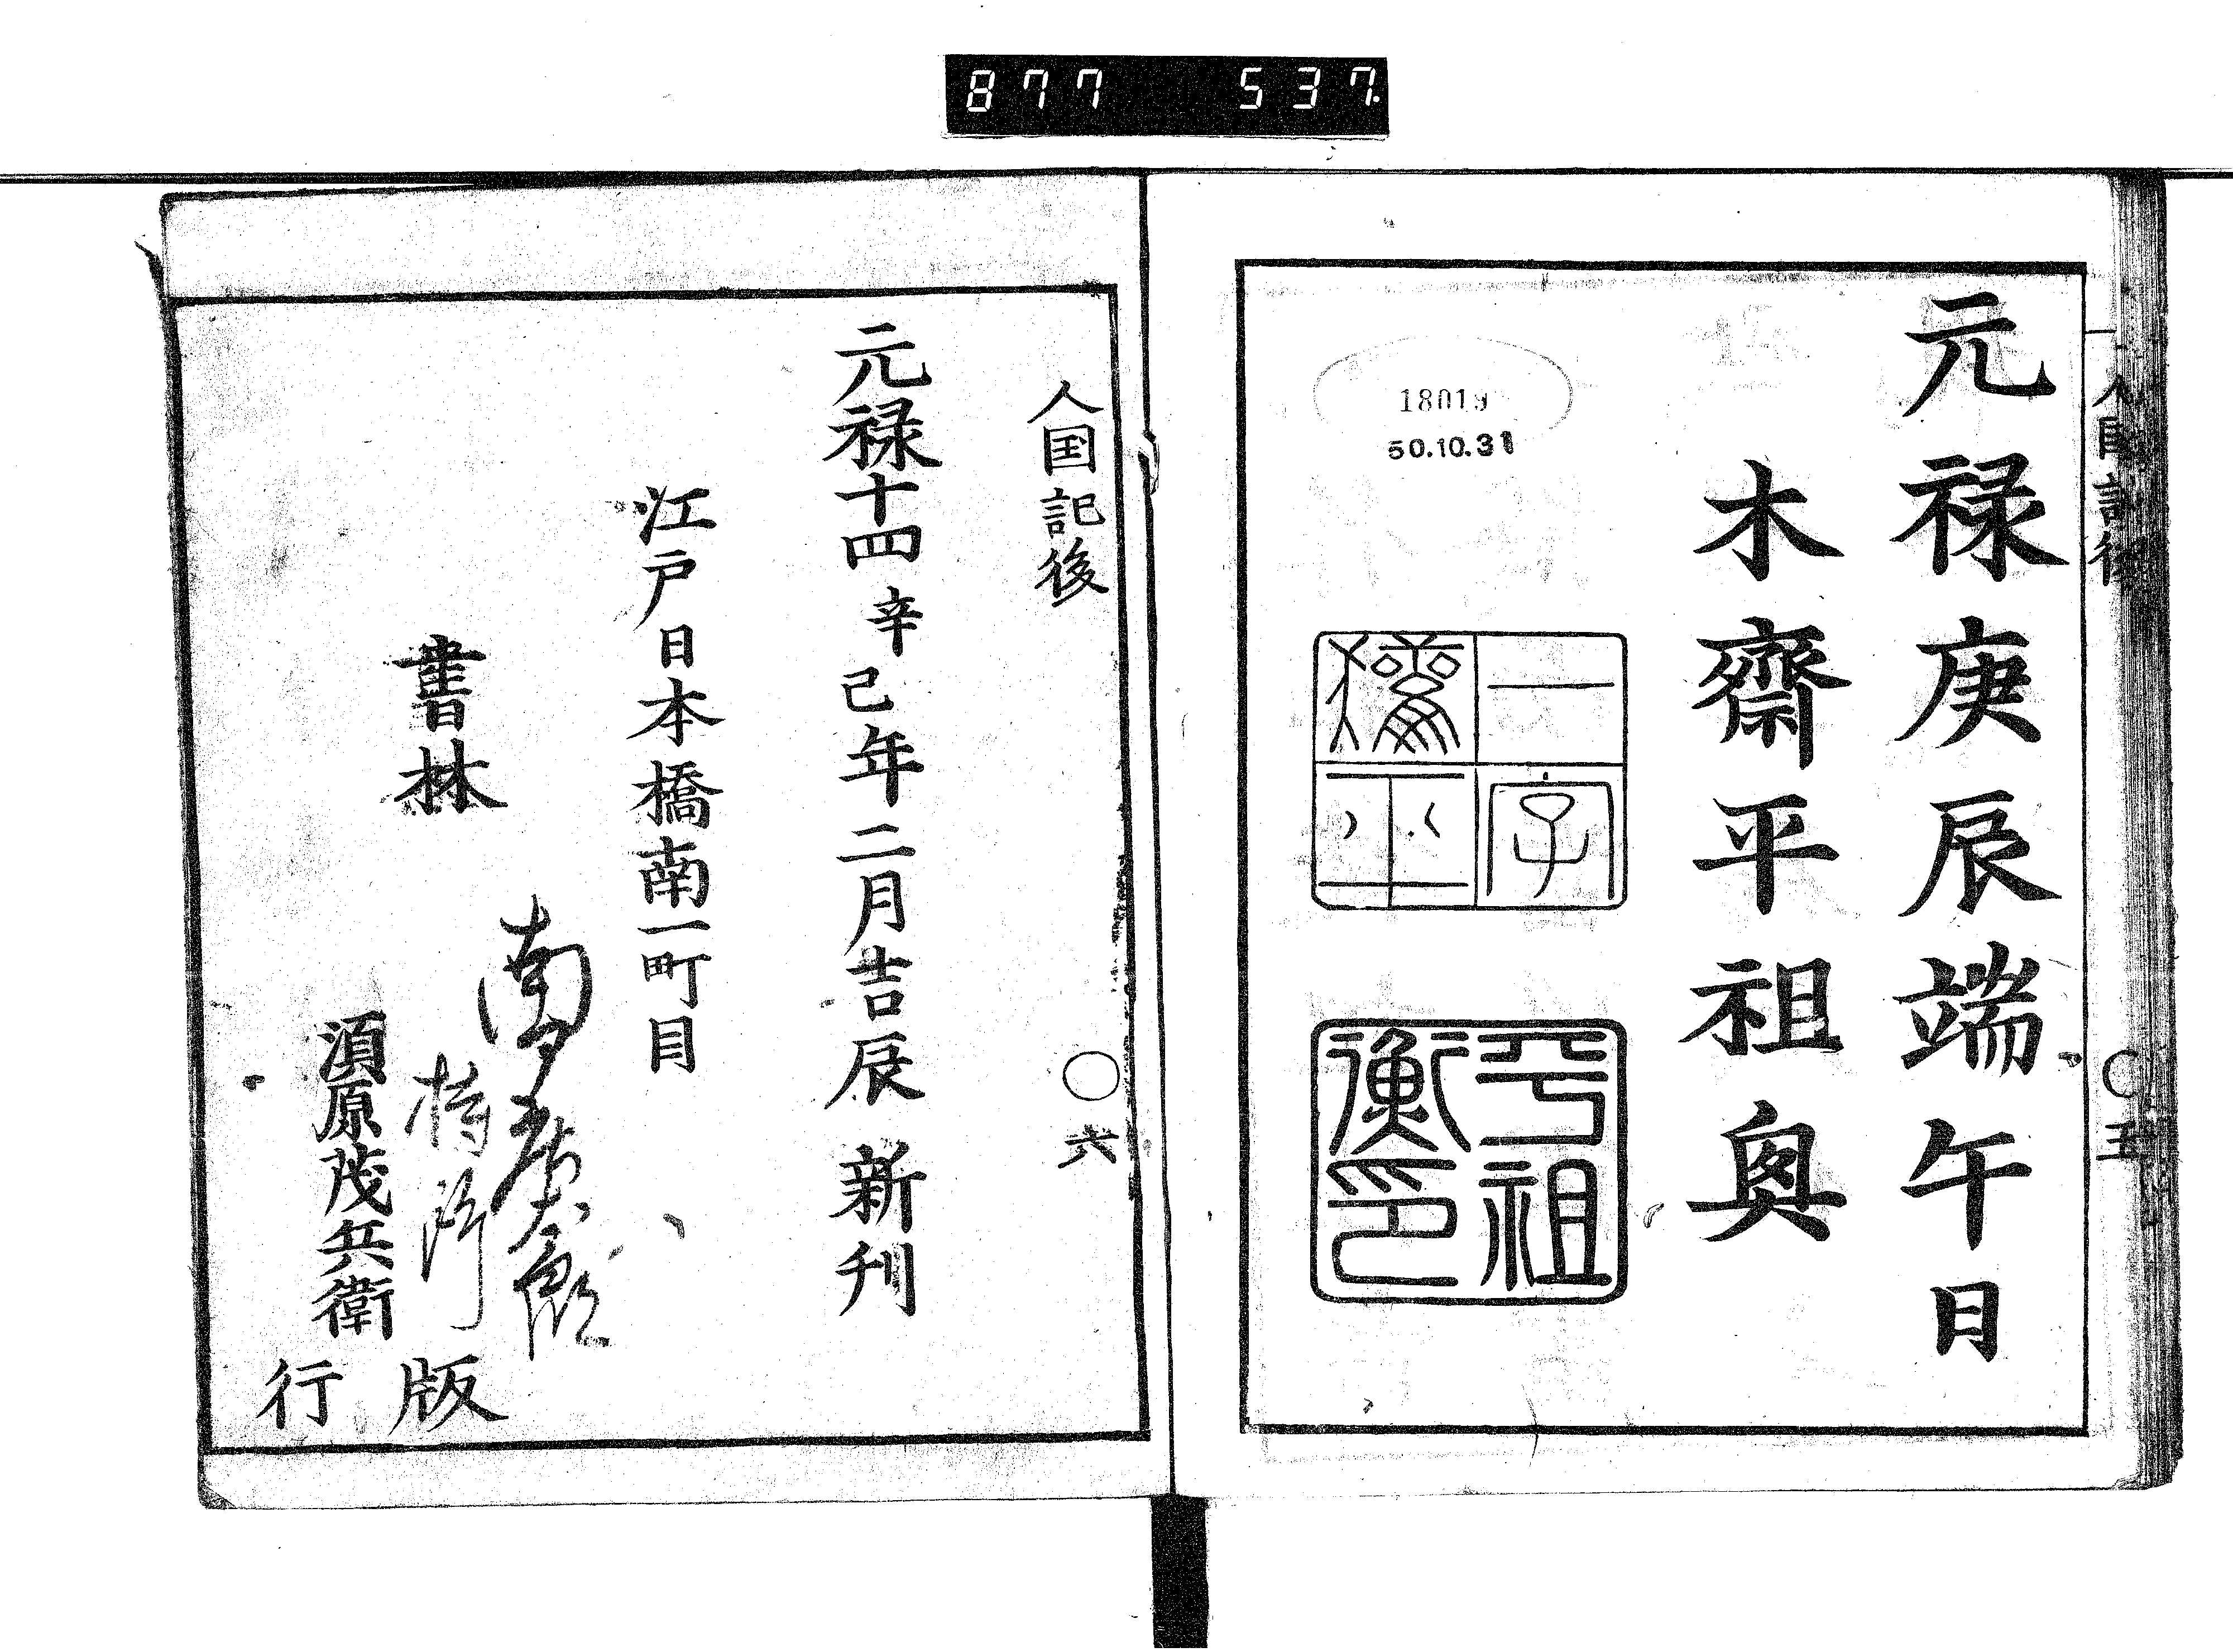 877 537.
元禄庚辰端午日
木齋平祖奥
18019
50.10.31
一字
平
平祖
衡印
五
人国記後
六
元禄十四辛己年二月吉辰新刊
江戸日本橋南一町目
書林
須原茂兵衛
版行